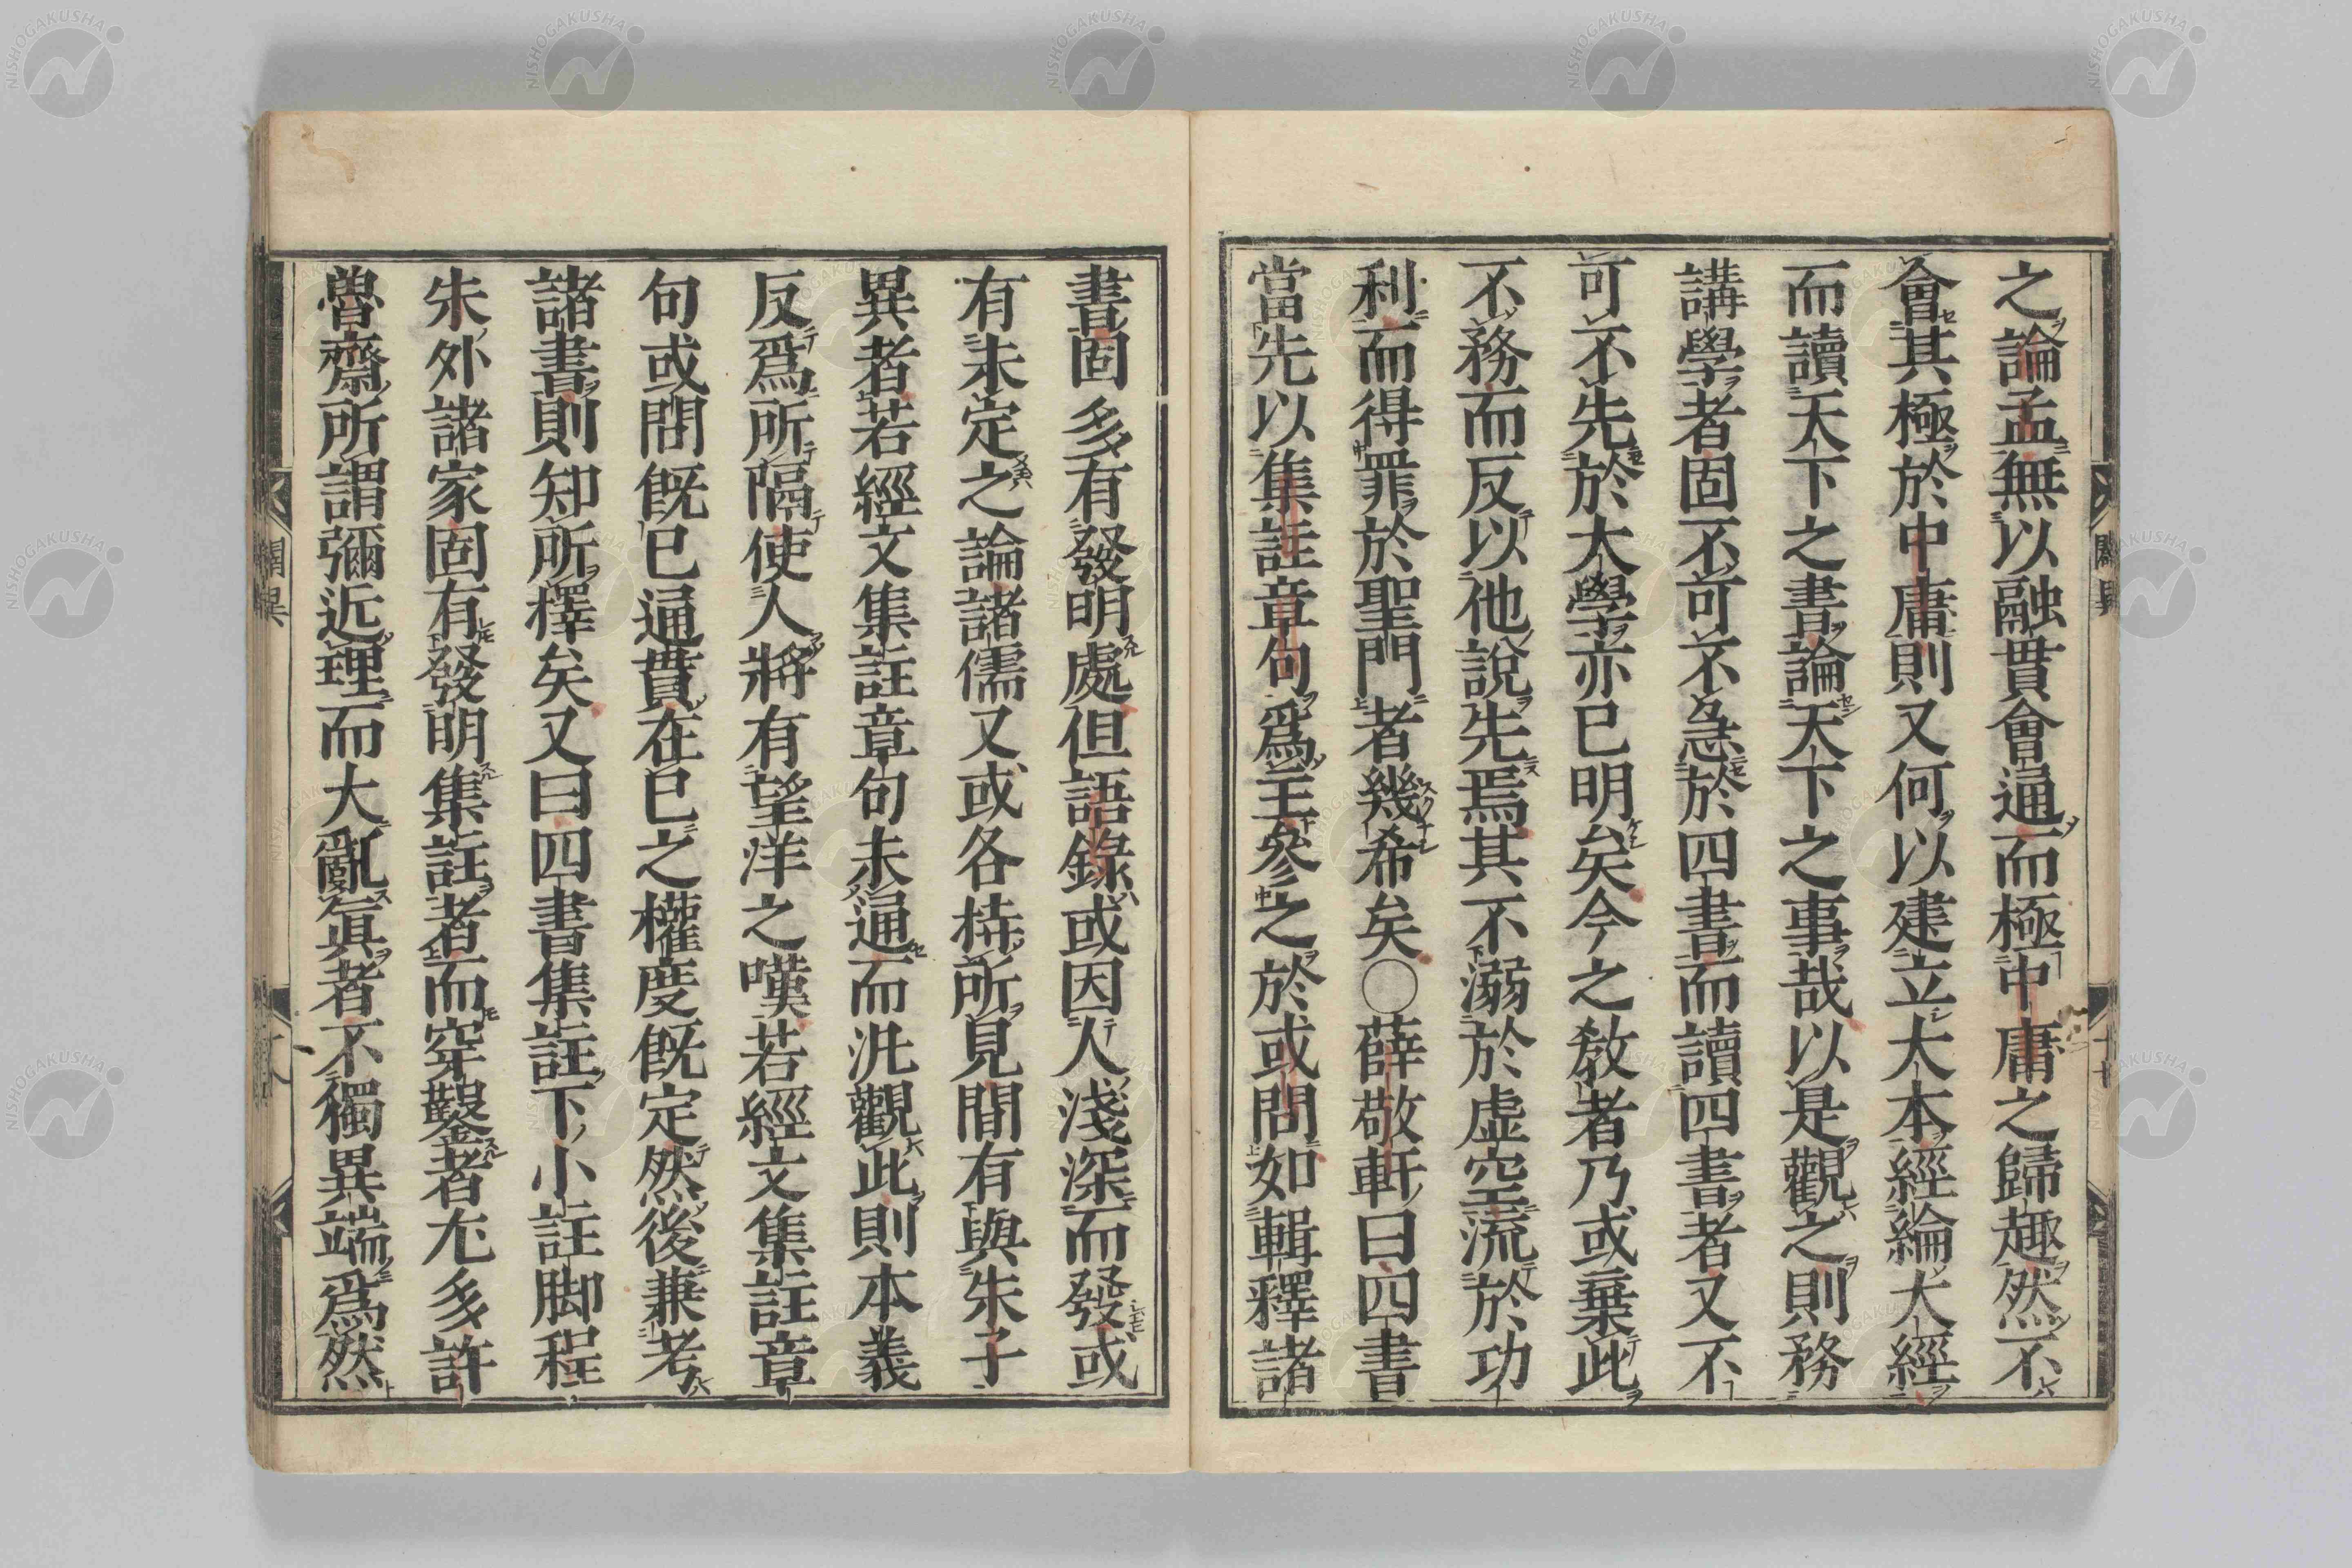 之論孟無以融貫會通而極中庸之歸趣然不
會其極於中庸則又何以建立大本經綸大經
而讀天下之書論天下之事哉以是觀之則務
講學者固不可不急於四書而讀四書者又不
可不先於大學亦已明矣今之敎者乃或棄此
不務而反以他說先焉其不溺於虛空流於功
利而得罪於聖門者幾希矣○薛敬軒曰四書
當先以集註章句爲主參之於或問如輯釋諸
書固多有發明處但語錄或因人淺深而發或
有未定之論諸儒又或各持所見間有與朱子
異者若經文集註章句未通而汎觀此則本義
反爲所隔使人將有望洋之嘆若經文集註章
句或問既已通貫在已之權度既定然後兼考
諸書則知所擇矣又曰四書集註下小註脚程
朱外諸家固有發明集註者而穿鑿者尢多許
魯齋所謂彌近理而大亂眞者不獨異端爲然
闢異
十七
NISHOGAKUSHA